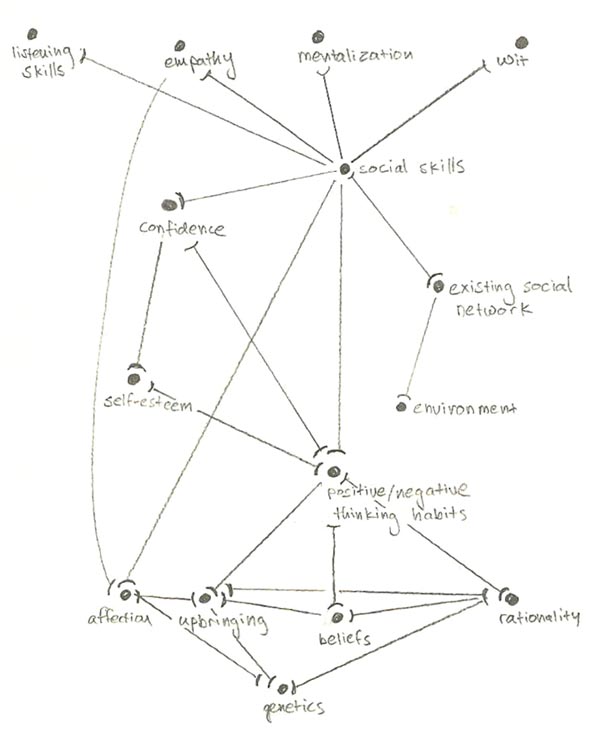 listening
skills
empathy
mentalization
wit
social skills
confidence
existing social
network
self-esteem
environment
positive/negative
thinking habits
affection
upbringing
beliefs
rationality
genetics